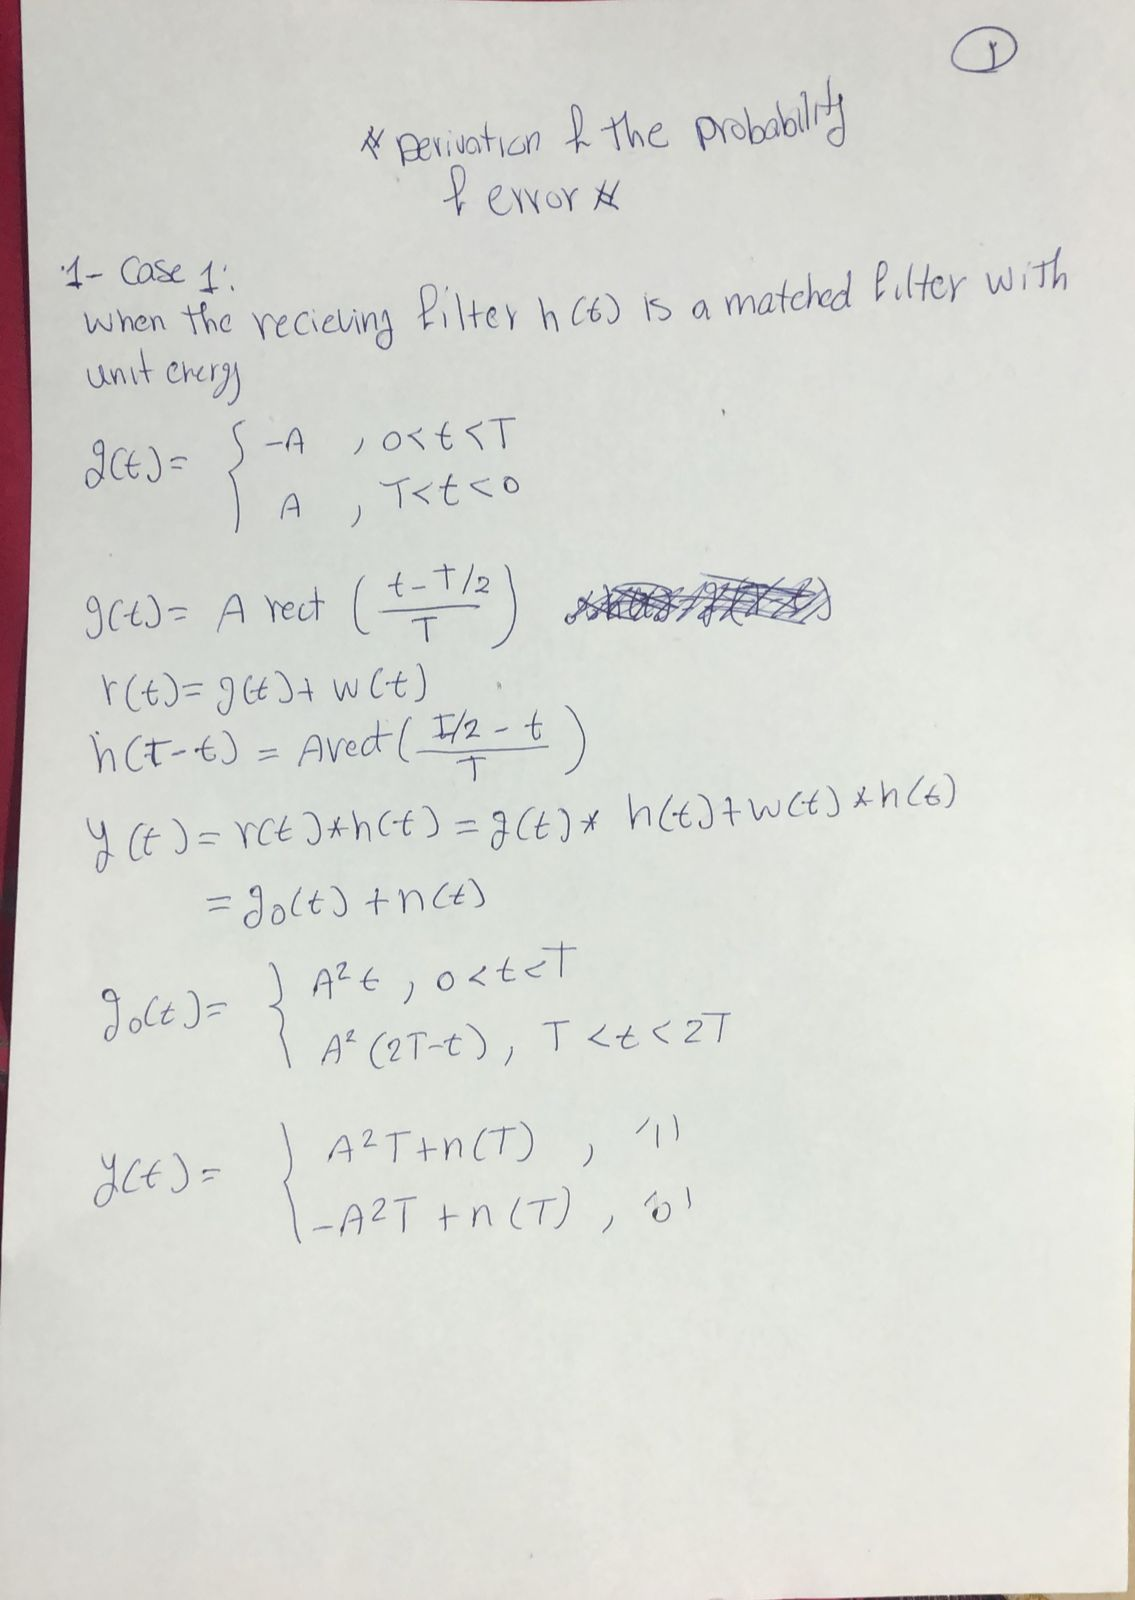 1
* Derivation of the probability
of error *
1- Case 1:
when the recieving filter h(t) is a matched filter with
unit energy
g(t)= { -A , 0<t<T
A , T<t<0
g(t)= A rect ( t-T/2 / T )
r(t)= g(t)+ w(t)
h(T-t) = A rect ( T/2 - t / T )
y(t)= r(t)*h(t) = g(t)* h(t)+w(t)*h(t)
= g₀(t) + n(t)
g₀(t)= { A²t , 0<t<T
A² (2T-t) , T<t<2T
y(t)= { A²T+n(T) , '1'
-A²T + n(T) , '0'